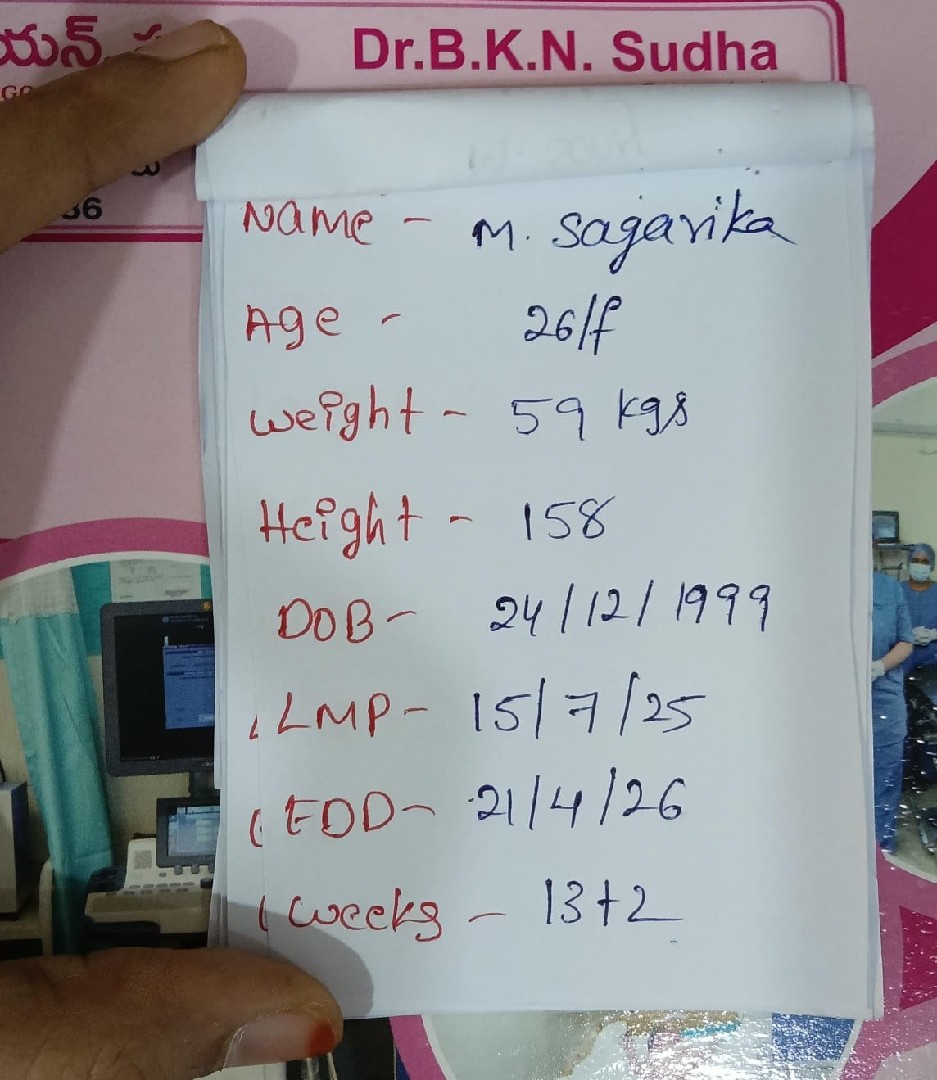 యన్
Dr.B.K.N. Sudha
GO
36
Name - M. Sagarika
Age - 26/f
Weight - 59 kgs
Height - 158
DOB - 24/12/1999
LMP - 15/7/25
EDD - 21/4/26
Weeks - 13+2